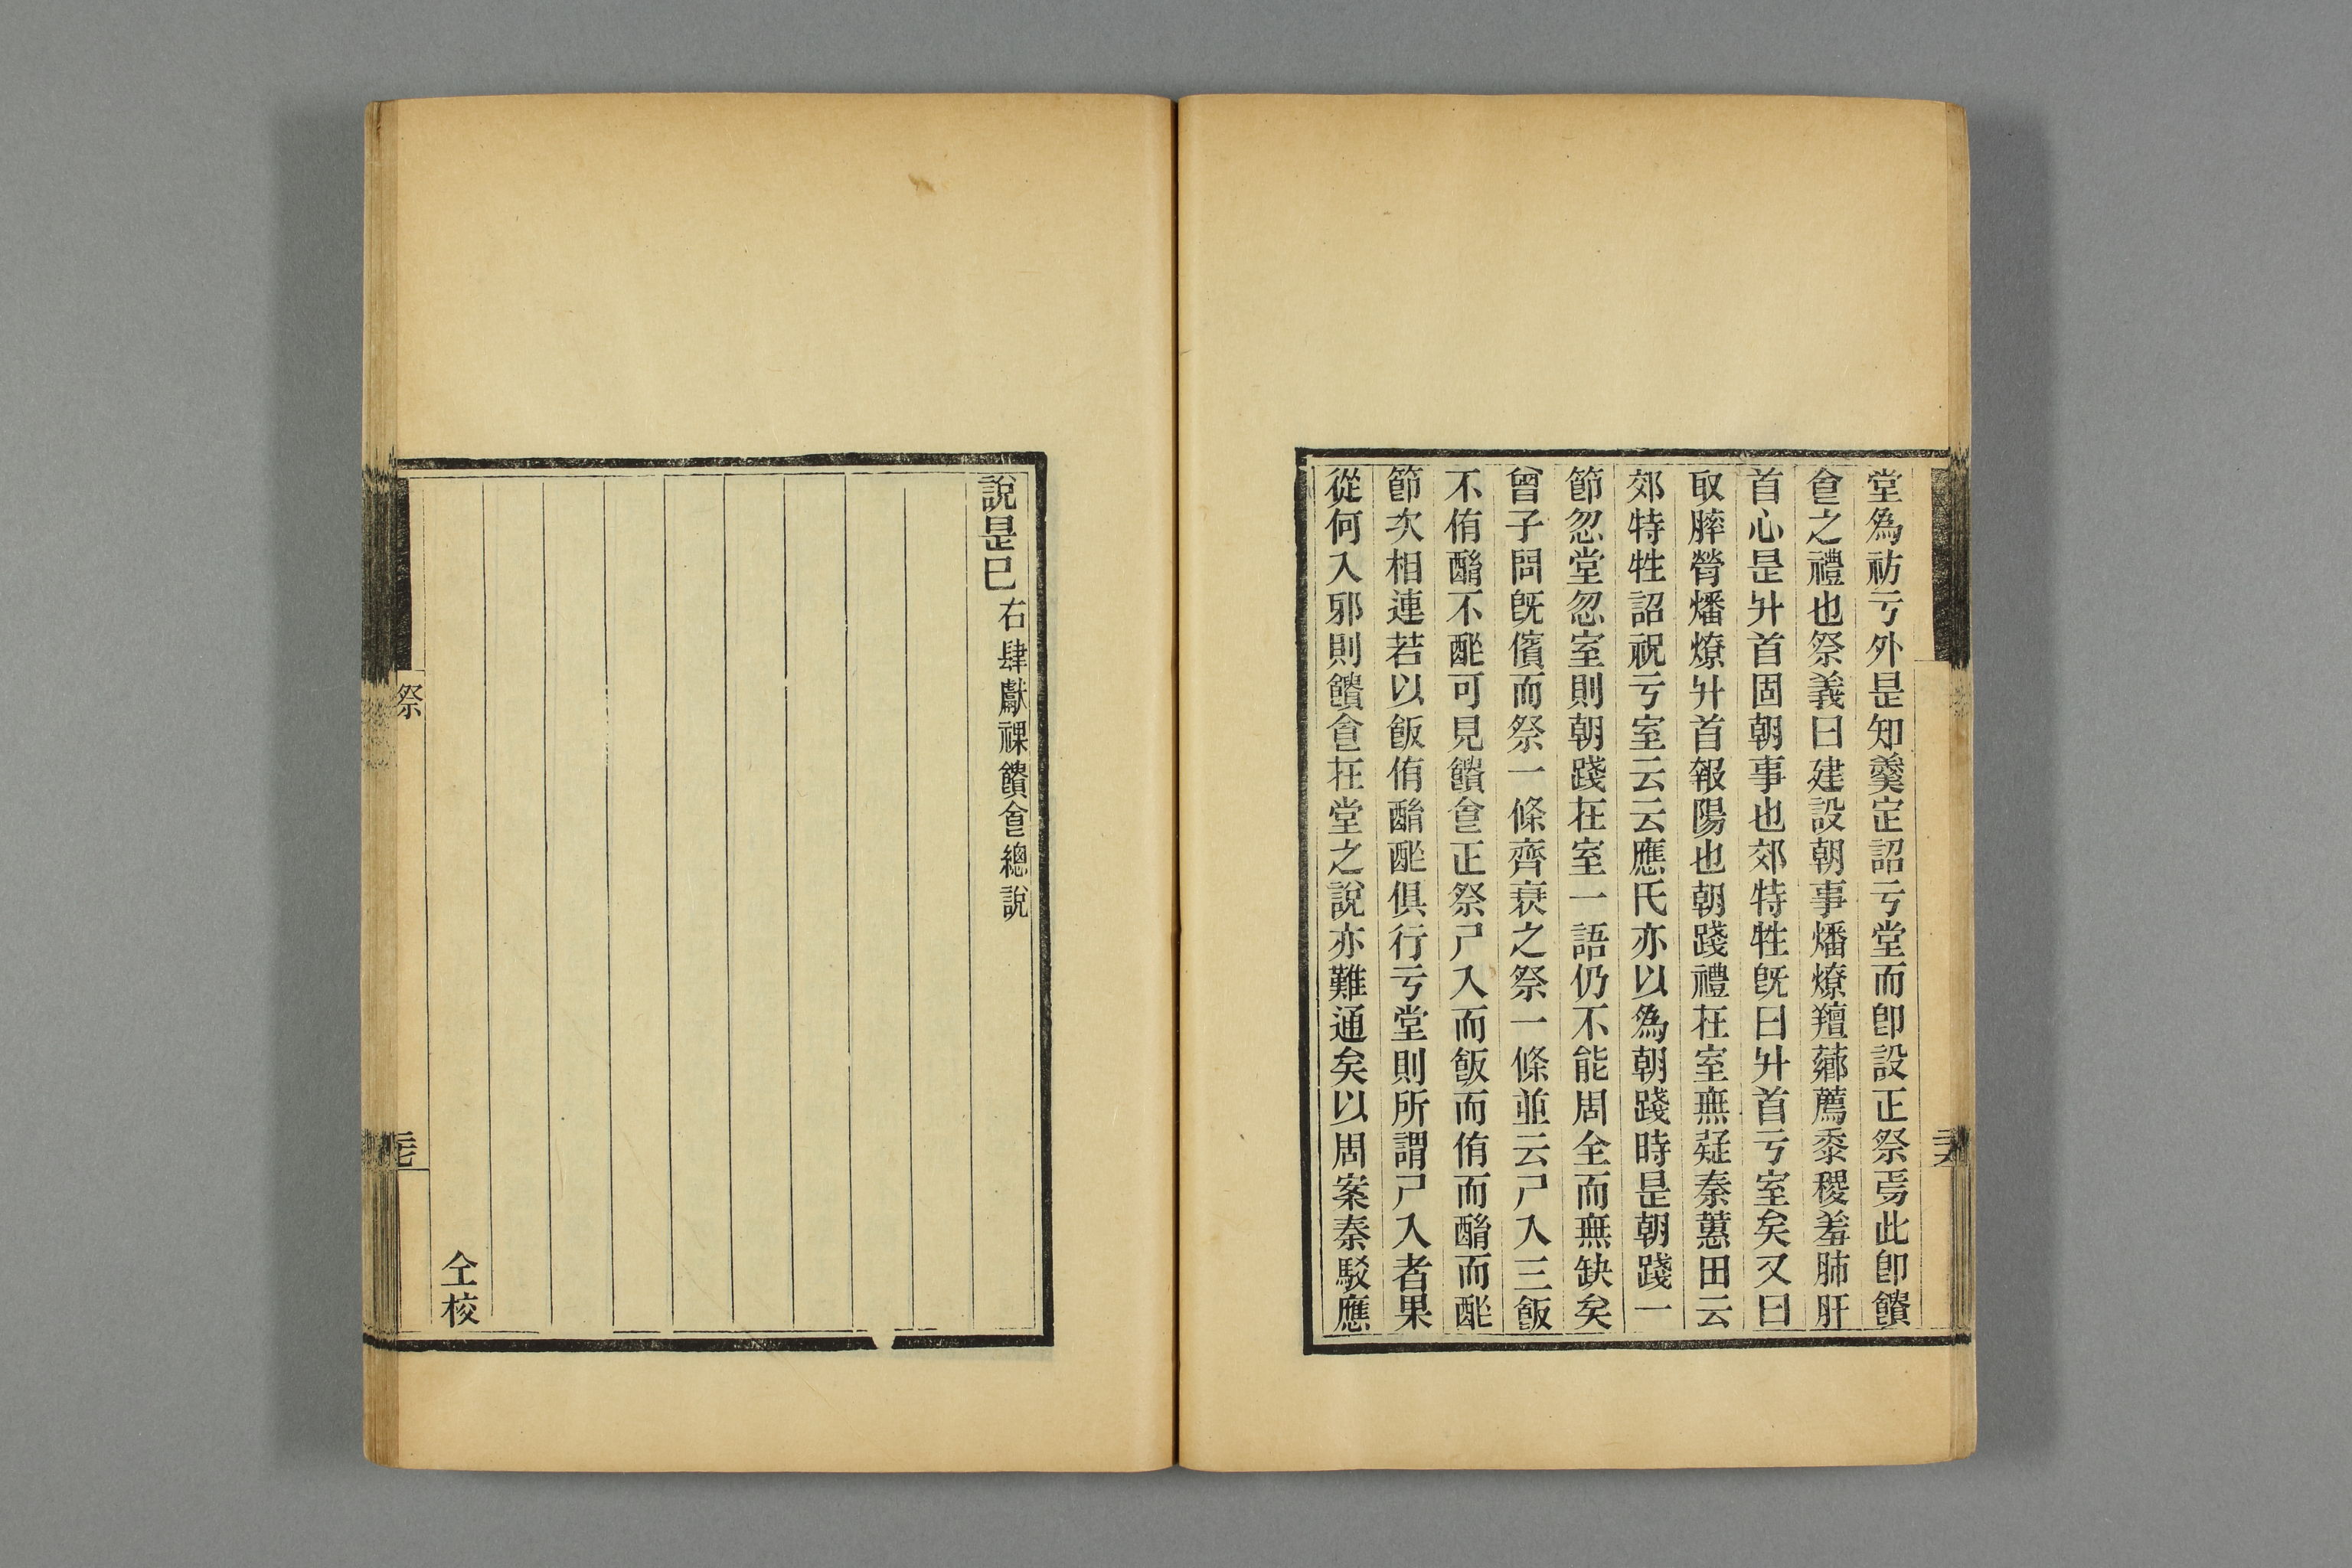 堂爲祊亏外是知羹定詔亏堂而卽設正祭焉此卽饋
𠊊之禮也祭義曰建設朝事燔燎羶薌薦黍稷羞肺肝
首心是升首固朝事也郊特牲旣曰升首亏室矣又曰
取膟膋燔燎升首報陽也朝踐禮在室無疑秦蕙田云
郊特牲詔祝亏室云云應氏亦以爲朝踐時是朝踐一
節忽堂忽室則朝踐在室一語仍不能周全而無缺矣
曾子問旣儐而祭一條齊衰之祭一條並云尸入三飯
不侑酳不酢可見饋食正祭尸入而飯而侑而酳而酢
節次相連若以飯侑酳酢俱行亏堂則所謂尸入者果
從何入邪則饋食在堂之說亦難通矣以周案秦駁應
說是已右肆獻祼饋食總說
仝校
祭